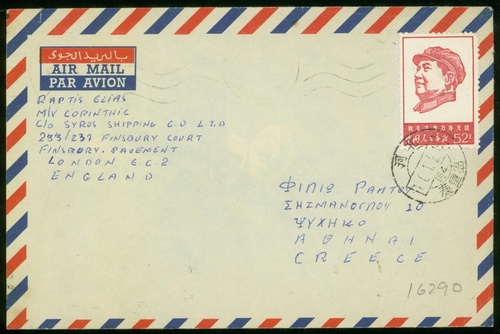 بالبريد الجوى
AIR MAIL
PAR AVION
RAPTIS ELIAS
M/V CORINTHIC
C/O SYROS SHIPPING C.O L.T.D
233/237 FINSBURY COURT
FINSBURY. PAVEMENT
LONDON E.C.2
ENGLAND
52
ΦΙΛΙΩ ΡΑΠΤΟ
ΣΗΣΜΑΝΟΓΛΟΥ 10
ΨΥΧΙΚΟ
ΑΘΗΝΑΙ
GREECE
16290